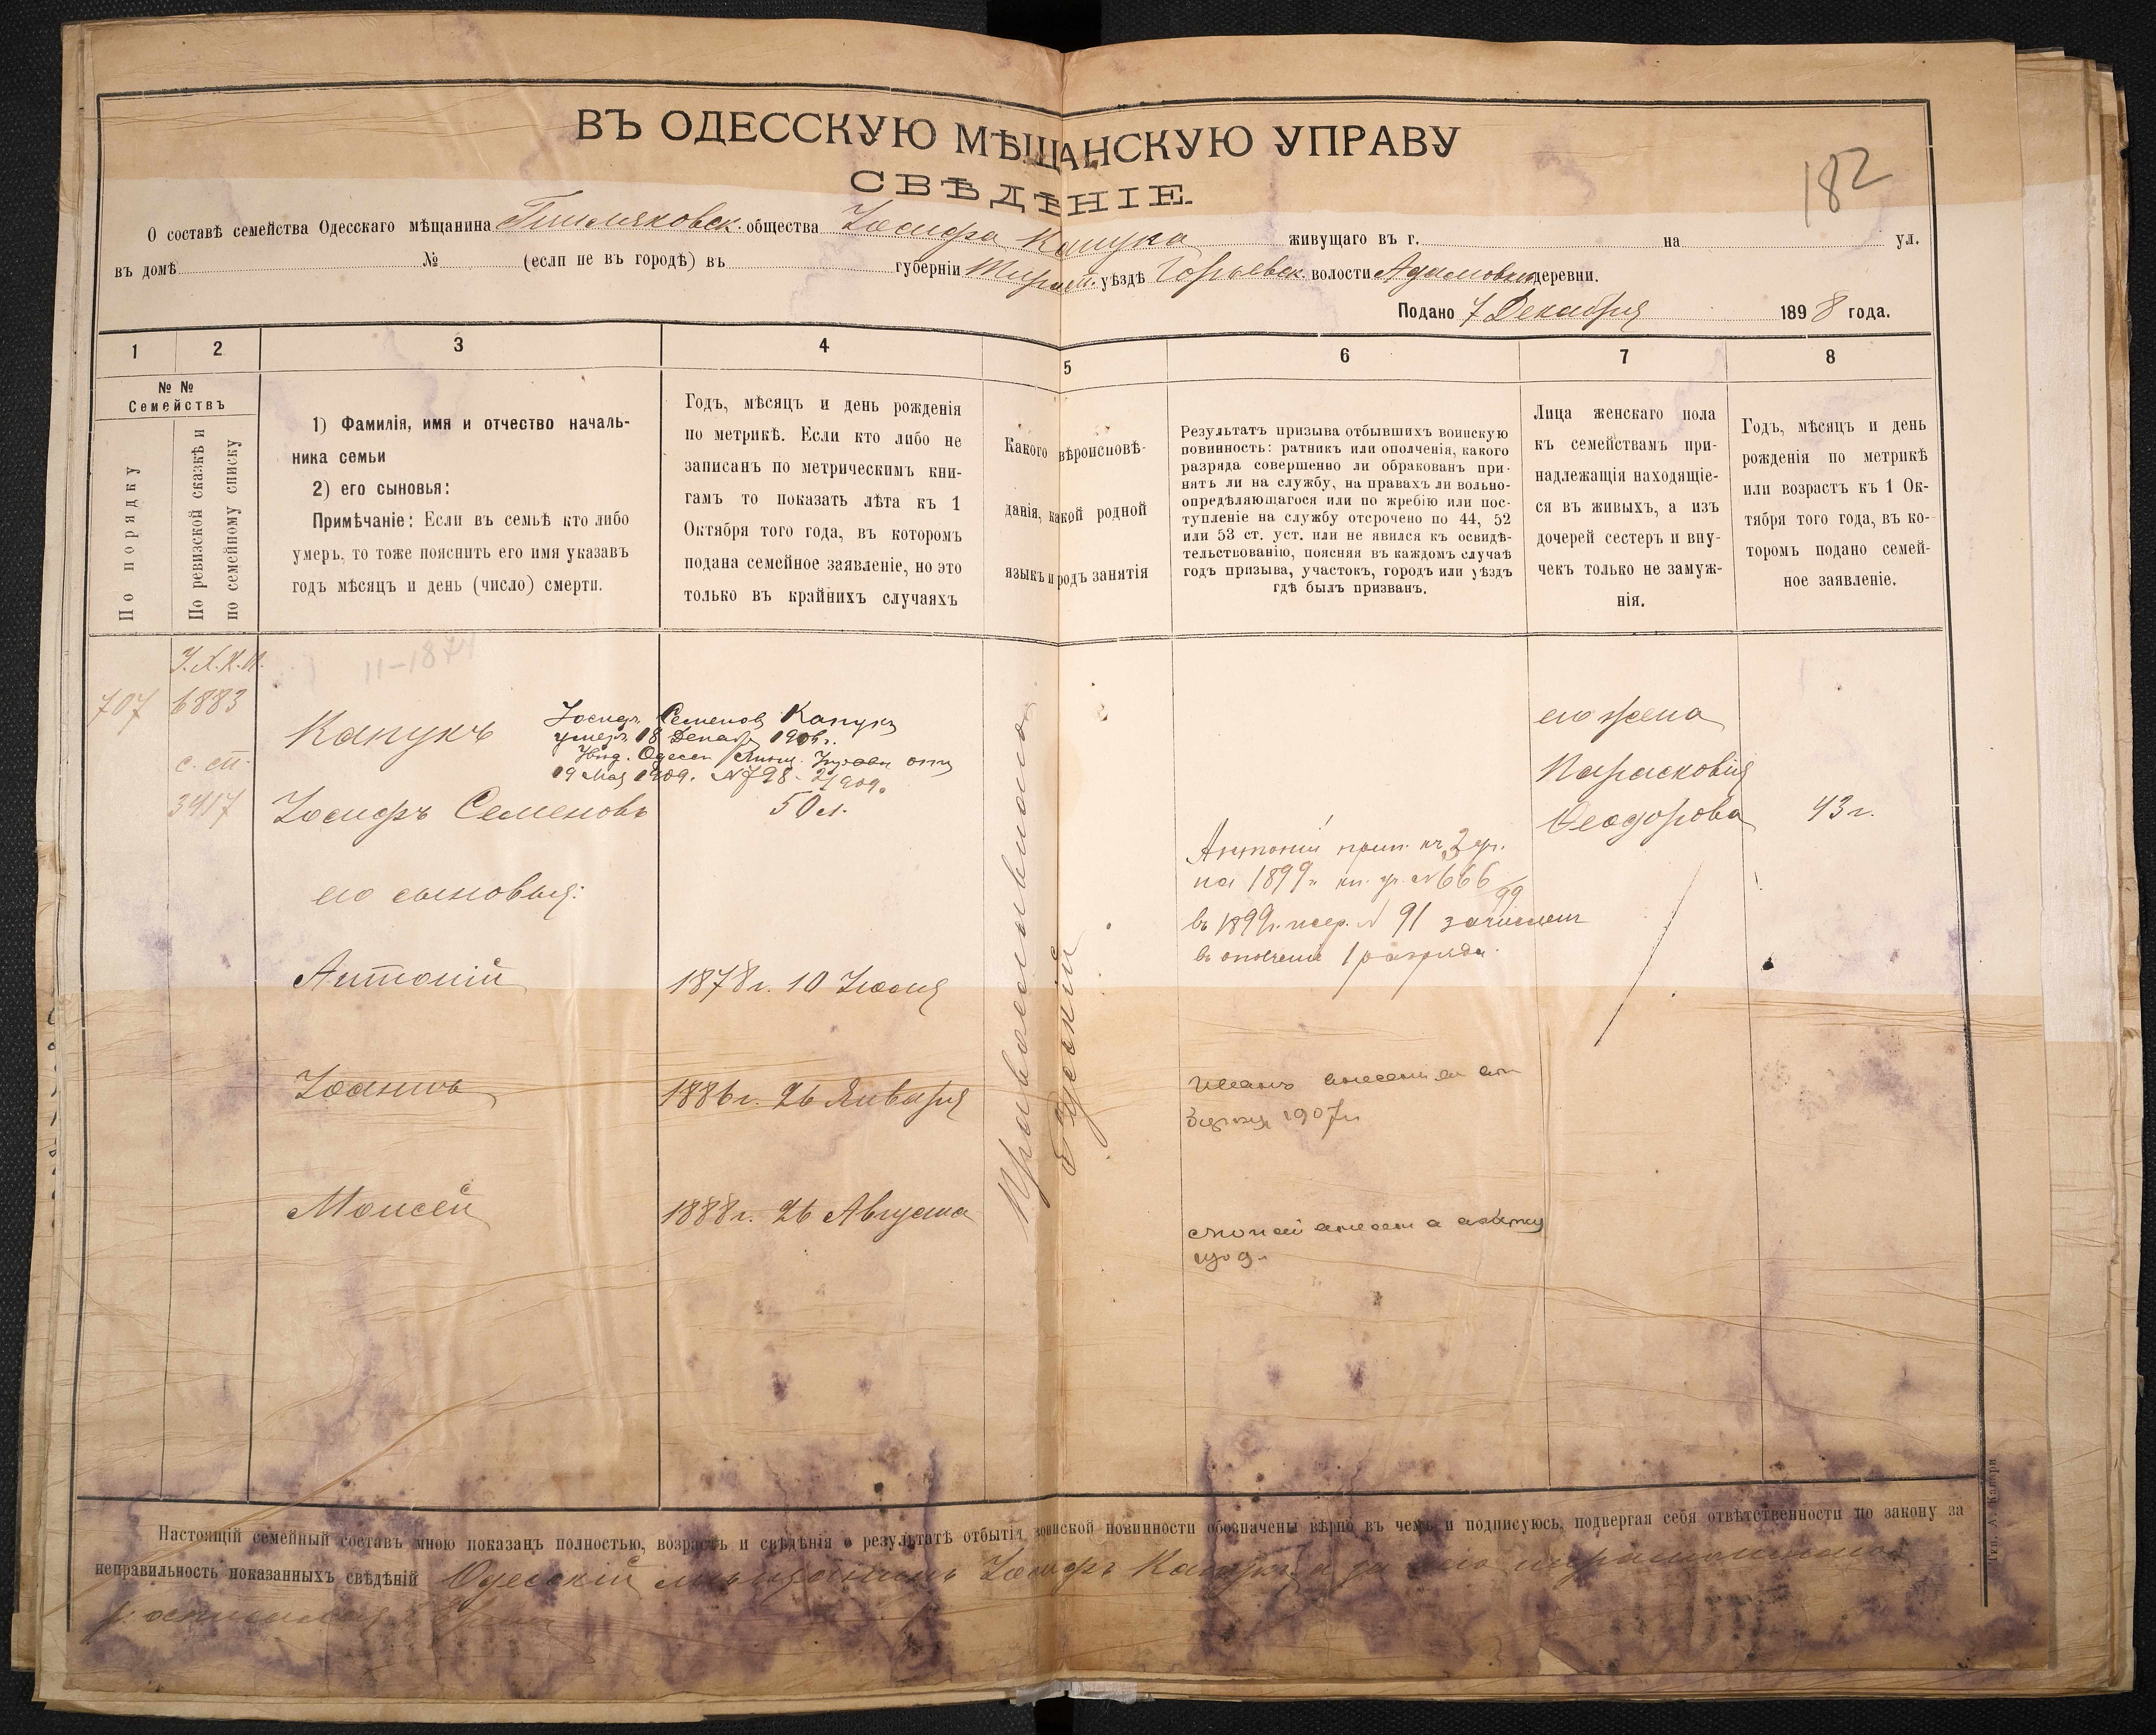 ВЪ ОДЕССКУЮ МѢЩАНСКУЮ УПРАВУ
СВѢДѢНІЕ.
182
О составѣ семейства Одесскаго мѣщанина общества Іосифа Капука живущаго въ г. на ул.
въ домѣ № (если не въ городѣ) въ губерніи Тирасп. уѣздѣ волости Адамовки деревни.
Подано 7 Декабря 1898 года.
1 2 3 4 5 6 7 8
№ №
Семействъ
По порядку
По ревизской сказкѣ и
по семейному списку
1) Фамилія, имя и отчество началь-
ника семьи
2) его сыновья:
Примѣчаніе: Если въ семьѣ кто либо
умеръ, то тоже пояснить его имя указавъ
годъ мѣсяцъ и день (число) смерти.
Годъ, мѣсяцъ и день рожденія
по метрикѣ. Если кто либо не
записанъ по метрическимъ кни-
гамъ то показать лѣта къ 1
Октября того года, въ которомъ
подана семейное заявленіе, но это
только въ крайнихъ случаяхъ
Какого вѣроисповѣ-
данія, какой родной
языкъ и родъ занятія
Результатъ призыва отбывшихъ воинскую
повинность: ратникъ или ополченія, какого
разряда совершенно ли обракованъ при-
нятъ ли на службу, на правахъ ли вольно-
опредѣляющагося или по жребію или пос-
тупленіе на службу отсрочено по 44, 52
или 53 ст. уст. или не явился къ освидѣ-
тельствованію, поясняя въ каждомъ случаѣ
годъ призыва, участокъ, городъ или уѣздъ
гдѣ былъ призванъ.
Лица женскаго пола
къ семействамъ при-
надлежащія находящіе-
ся въ живыхъ, а изъ
дочерей сестеръ и вну-
чекъ только не замуж-
нія.
Годъ, мѣсяцъ и день
рожденія по метрикѣ
или возрастъ къ 1 Ок-
тября того года, въ ко-
торомъ подано семей-
ное заявленіе.
11-1874
707 6883
с. сп.
3417
Капукъ
Іосиф. Семенов Капукъ
умеръ 18 Декаб. 190
Одесск Управы отъ
19 Мая 1909. №798
Іосифъ Семеновъ 50 л.
его сыновья:
Антоній 1878 г. 10 Іюля
Іоаннъ 1886 г. 26 Января
Моисей 1888 г. 26 Августа
Православнаго
Русскій
Антоній прип. къ 3 уч.
на 1899 г. №666/99
въ 1899 г. жер. № 91 зачислен
в ополчение 1 разряда.
Иванъ
1907 г.
его жена
Парасковія
Ѳеодорова 43 г.
Настоящій семейный составъ мною показанъ полностью, возрастъ и свѣдѣнія о результатѣ отбытія воинской повинности обозначены вѣрно въ чемъ и подписуюсь, подвергая себя отвѣтственности по закону за
неправильность показанныхъ свѣдѣній Одесскій мѣщанинъ Іосифъ Капукъ а за его неграмотностью
росписался